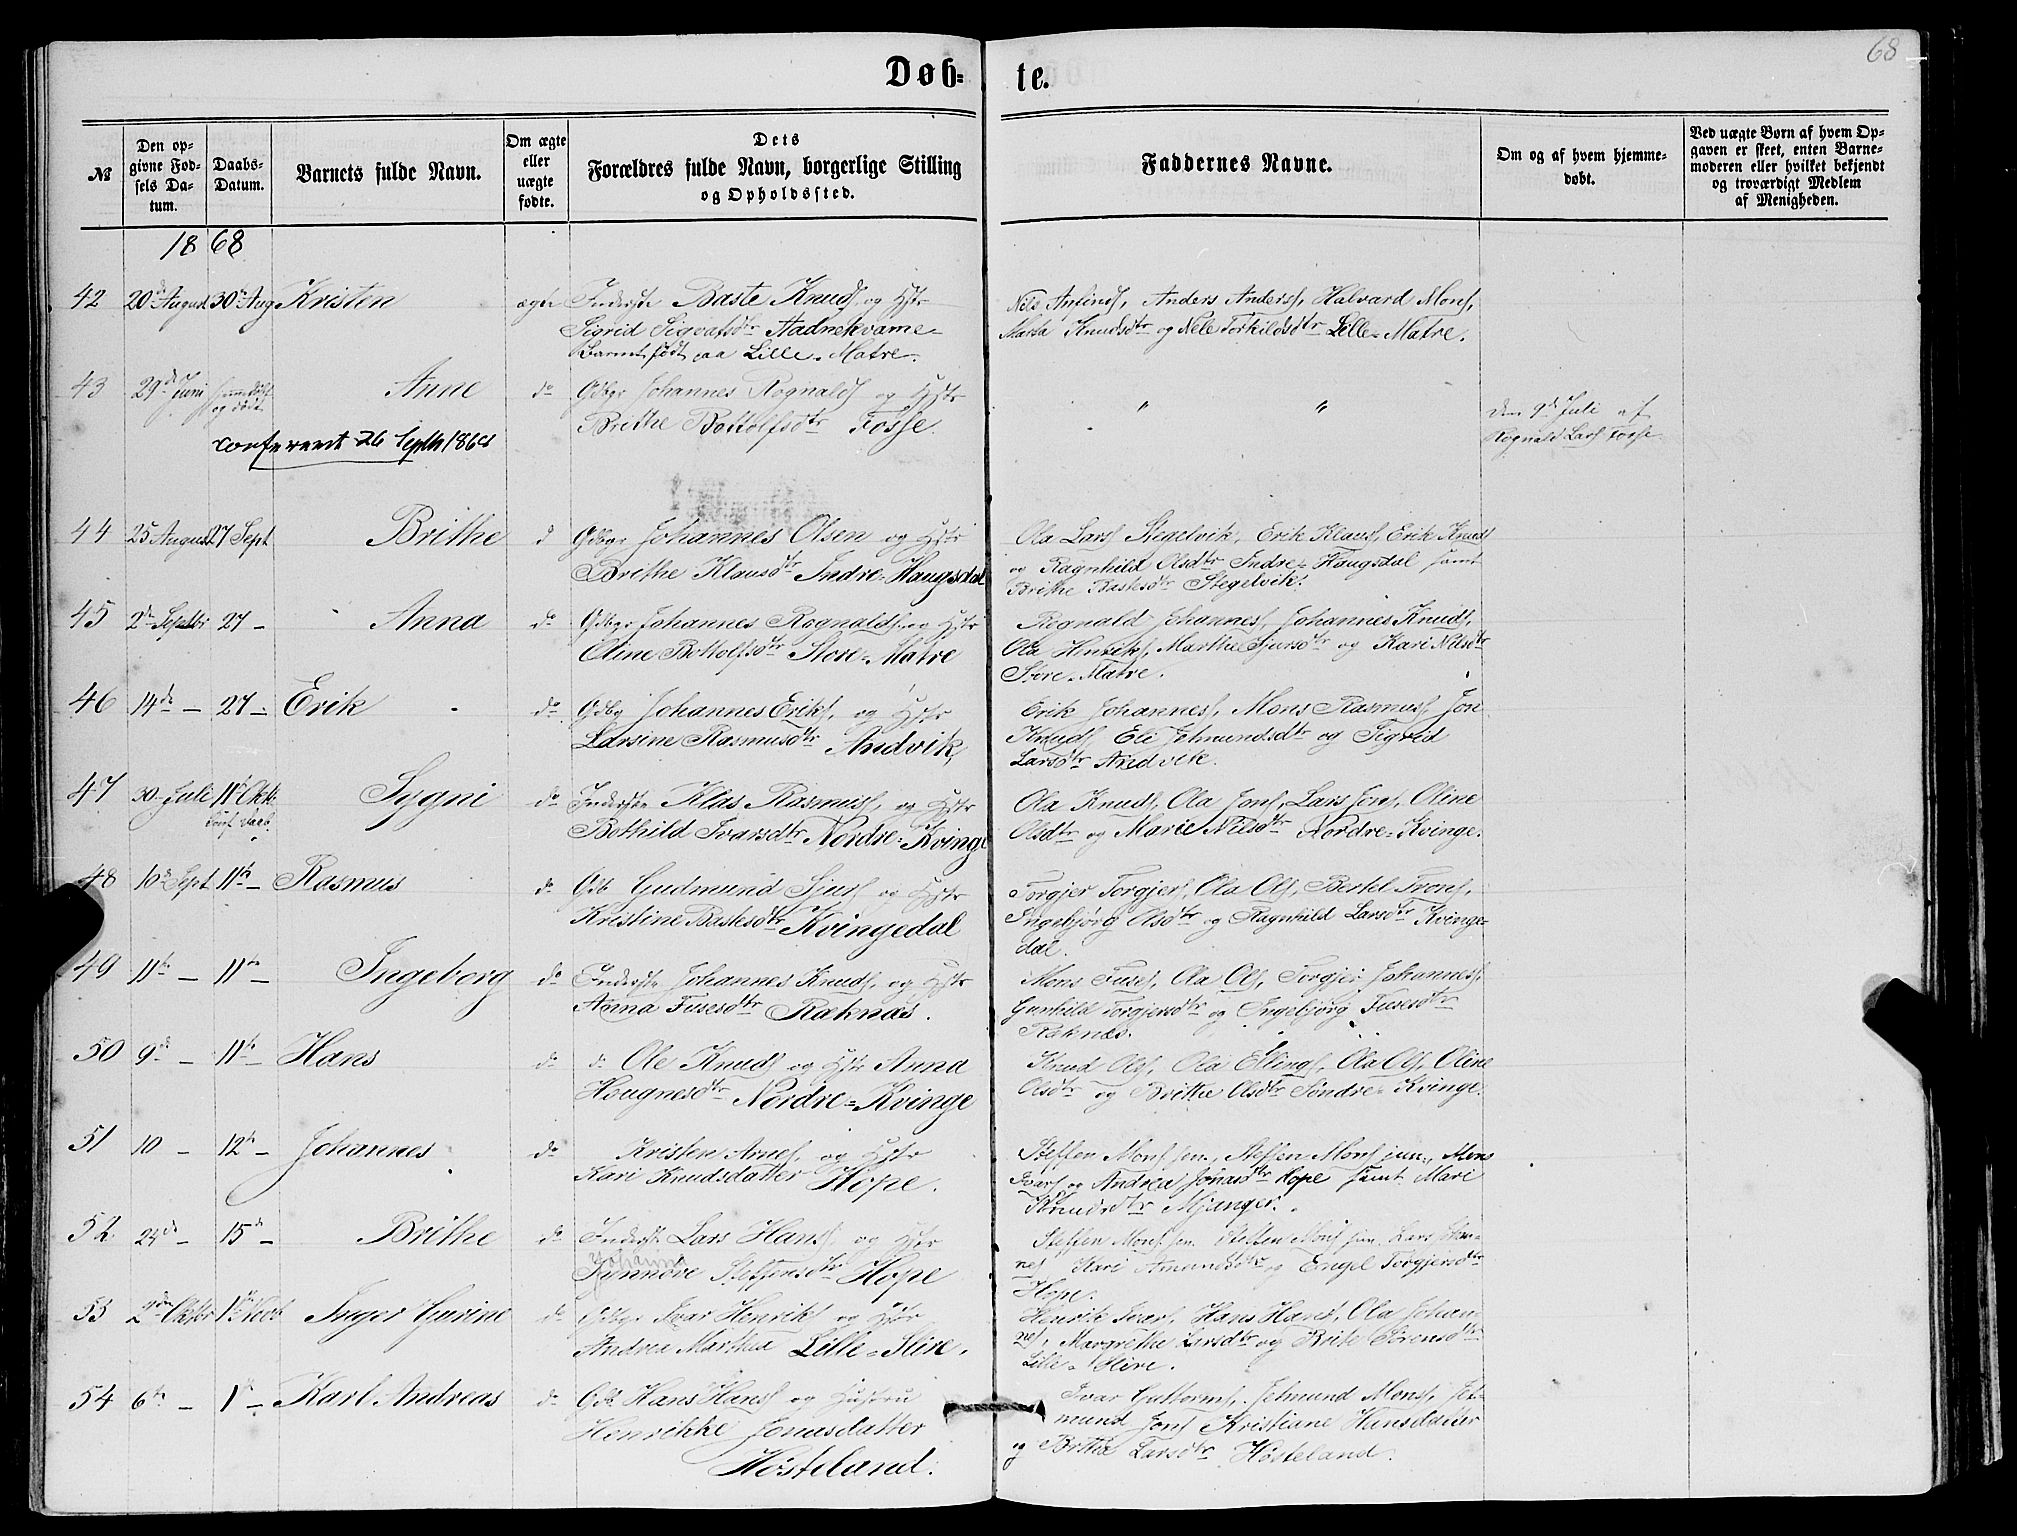 68
Døb-
te.
№
Den op-
givne Fød-
sels Da-
tum.
Daabs-
Datum.
Barnets fulde Navn.
Om ægte
eller
uægte
fødte.
Dets
Forældres fulde Navn, borgerlige Stilling
og Opholdssted.
Faddernes Navne.
Om og af hvem hjemme-
døbt.
Ved uægte Børn af hvem Op-
gaven er skeet, enten Barne-
moderen eller hvilket bekjendt
og troværdigt Medlem
af Menigheden.
1868
42 20de August 30te Aug Kristen ægte Inderste Baste Knuds. og Hstr
Sigrid Sigvatsdtr Aadnekvame
Barnet født paa Lille-Matre.
Nels Anfinds, Anders Anders., Halvard Mons.,
Marta Knudsdtr og Nele Torkildsdtr Lille-Matre.
43 29de Juni hjemmedøbt
og død Anne do Gdbgr Johannes Rognalds. og Hstr
Brithe Bottolfsdtr Fosse.
" "
den 9de Juli af
Rognald Lars. Fosse
confereret 26 Septbr 1868
44 25 August 27 Sept Brithe d Gdbgr Johannes Olsen og Hstr
Brithe Klausdtr Indre-Haugsdal
Ola Lars. Stegelvik, Erik Klaus., Erik Knuds.
og Ragnhild Olsdtr Indre-Haugsdal samt
Brithe Bastesdtr Stegelvik.
45 2de Septbr 27 - Anna do Gdbgr Johannes Rognalds. og Hstr
Oline Bottolfsdtr Store-Matre
Rognald Johannes., Johannes Knuds.,
Ola Henriks., Marthe Sjursdtr og Kari Nilsdtr
Store-Matre.
46 14de - 27 - Erik do Gdbg Johannes Eriks. og Hstr
Larsine Rasmusdtr Andvik,
Erik Johannes., Mons Rasmus. Jon
Knuds. Eli Jetmundsdtr og Sigrid
Larsdtr Andvik.
47 30 Juli 11te Okt. Sygni do Inderste Klas Rasmus., og Hstr
Bothild Ivarsdtr Nordre-Kvinge
Ola Knuds., Ola Jons., Lars Jons., Oline
Olsdtr og Marie Nilsdtr Nordre-Kvinge.
48 10de Sept 11te - Rasmus do Gdb Gudmund Sjurs. og Hstr
Kristine Bastesdtr Kvingedal
Torgjer Torgjers., Ola Ols., Bertel Trons.,
Ingebjørg Olsdtr og Ragnhild Larsdtr Kvinge-
dal.
49 11te - 11te - Ingeborg do Inderste Johannes Knuds. og Hstr
Anna Tusesdtr Raknæs.
Mons Tuses., Ola Ols., Torgjer Johannes.
Gunhild Torgjersdtr og Ingebjørg Tusesdtr
Raknæs.
50 9de - 11te - Hans do d. Ole Knuds. og Hstr Anna
Hougnesdtr Nordre-Kvinge
Knud Ols., Ola Ellings., Ola Ols., Oline
Olsdtr og Brithe Olsdtr Søndre-Kvinge.
51 10 - 12te - Johannes do Kristen Arnes. og Hstr
Kari Knudsdatter Hope.
Steffen Mons. sen., Steffen Mons. jun., Mons
Ivars. og Andrea Jonasdtr Hope samt Mari
Knudsdtr Mjanger.
52. 24de - 15de - Brithe do Inderste Lars Hans. og Hstr
Johanna
Synnøve Steffensdtr Hope
Steffen Mons. sen. Steffen Mons. jun. Lars Johan-
nes. Kari Amundsdtr og Engel Torgjersdtr
Hope.
53 2den Oktbr 1ste Novb Inger Gurine do Gdbgr Ivar Henriks. og Hstr
Andrea Marthea Lille-Slire.
Henrik Ivars., Hans Hans., Ola Johan-
nes., Margrethe Larsdtr og Brite Sørensdtr
Lille-Slire.
54 6te - 1ste - Karl Andreas do Gdb. Hans Hans. og Hustru
Henrikke Jonasdatter
Høsteland.
Ivar Guttorms., Jetmund Mons., Jet-
mund Jons. Kristiane Hansdatter
og Brithe Larsdtr Høsteland.